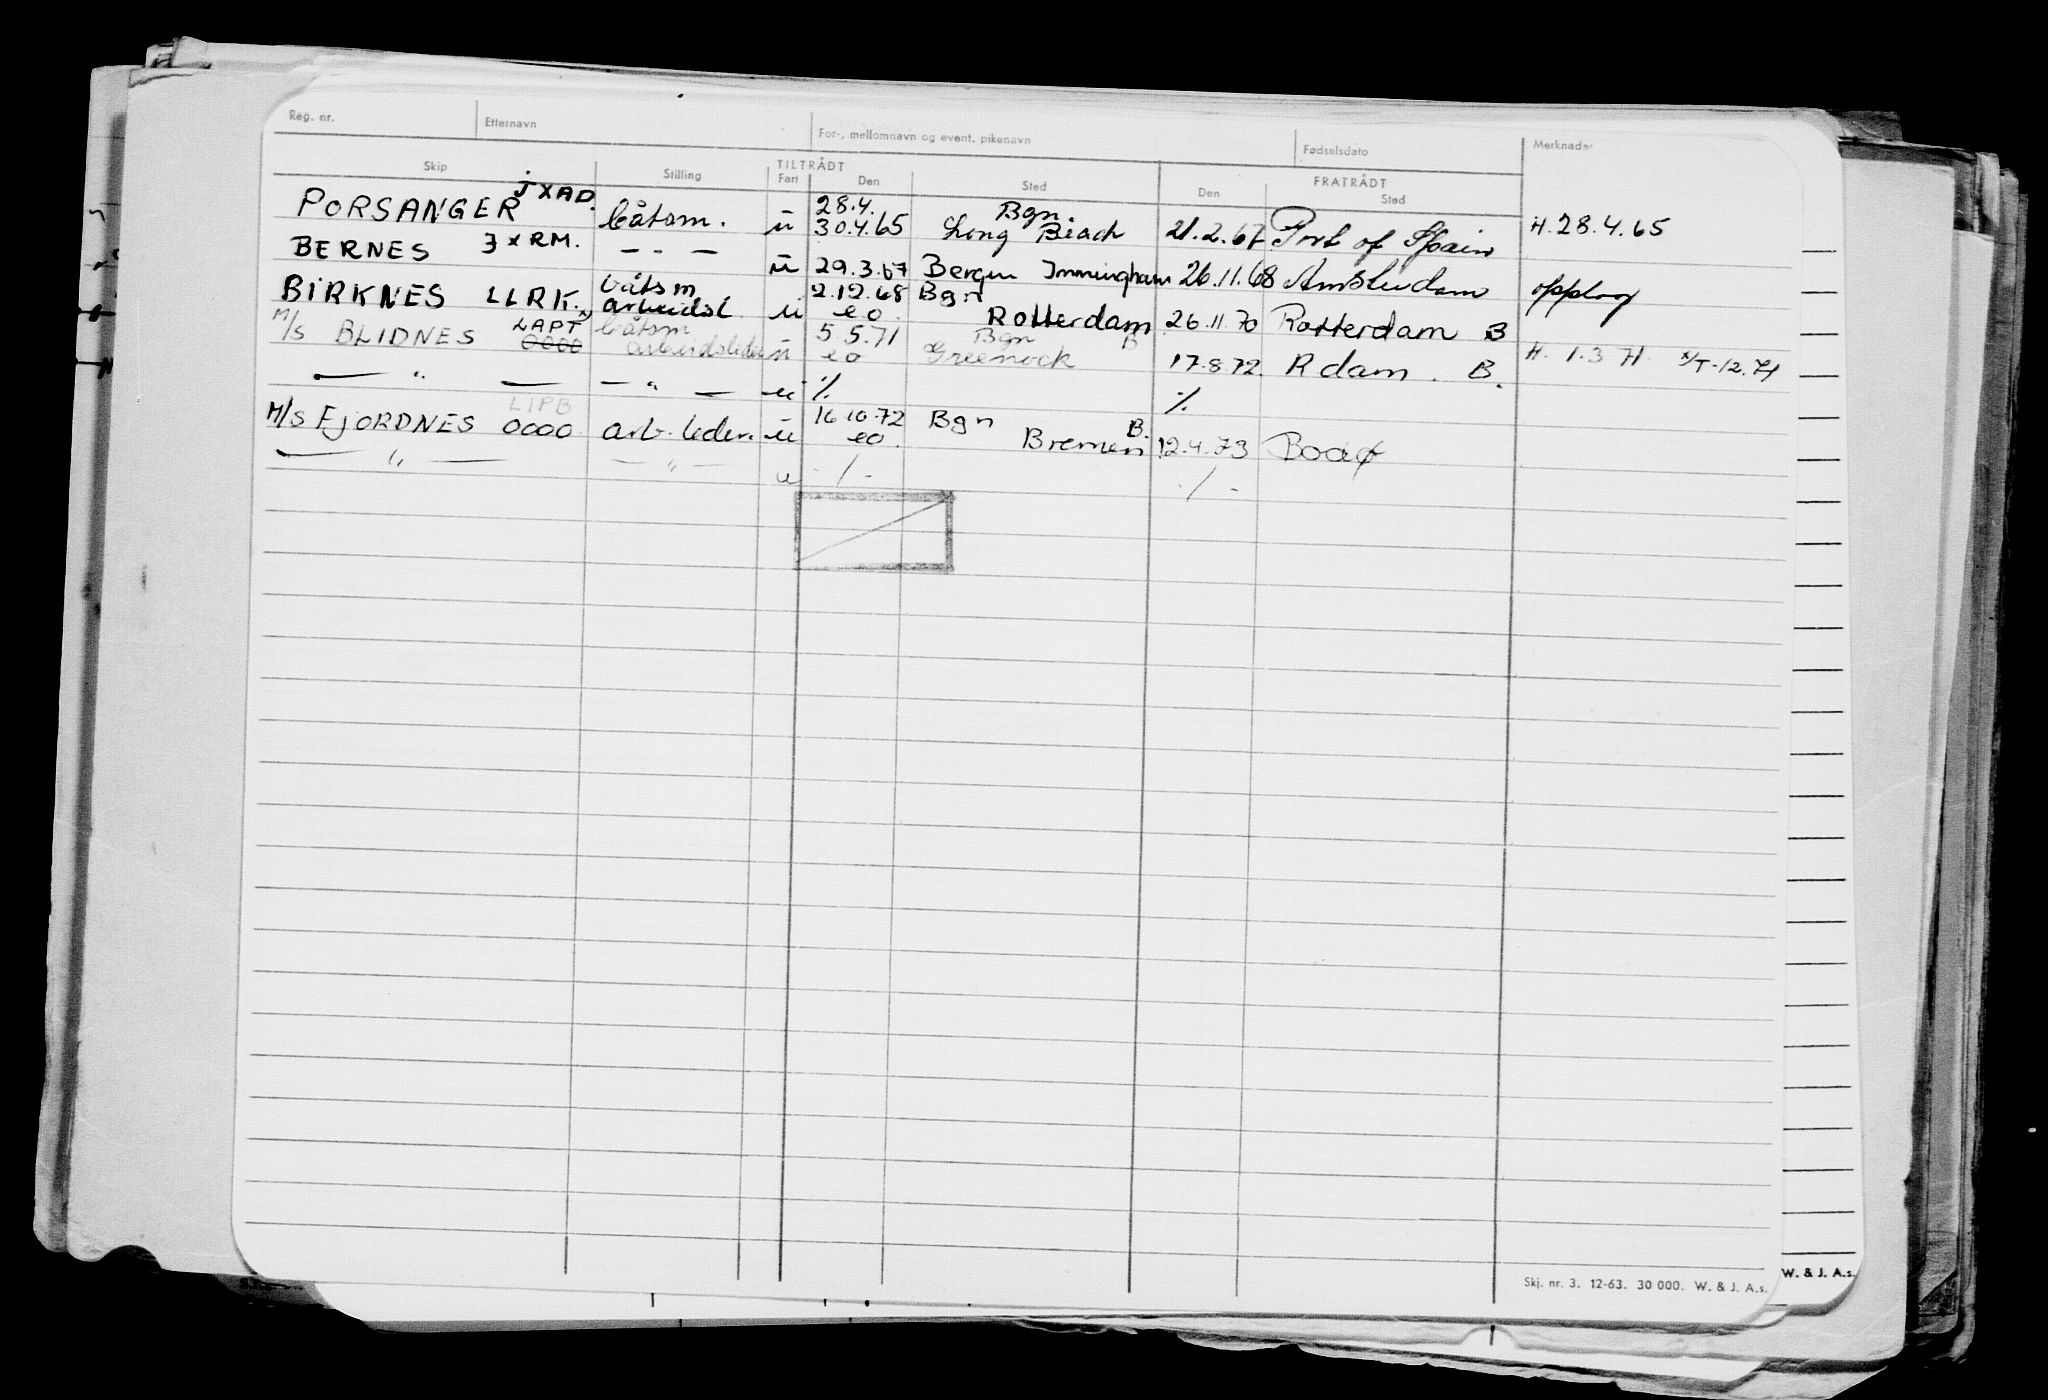 Reg. nr. Etternavn For-, mellomnavn og event. pikenavn Fødselsdato Merknader
TILTRÅDT FRATRÅDT
Skip Stilling Fart Den Sted Den Sted
PORSANGER JXAD. båtsm. u 28.4. 30.4.65 Bgn Long Beach 21.2.67 Port of Spain H. 28.4.65
BERNES JXRM. — - — u 29.3.67 Bergen Immingham 26.11.68 Amsterdam opplag
BIRKNES LLRK. båtsm arbeidsl. u 2.12.68 eo. Bgn Rotterdam 26.11.70 Rotterdam B
M/S BLIDNES LAPT 0000 båtsm arbeidsleder u 5.5.71 eo Bgn B Greenock 17.8.72. Rdam. B. H. 1.3.71 N/T-12.71
— " — — " — u ./. ./.
M/S FJORDNES LIPB 0000 arb.leder. u 16.10.72 eo. Bgn B. Bremen 12.4.73 Bodø
— " — — " — u -/- -/-
Skj. nr. 3. 12-63. 30 000. W. & J. A.s.
W. & J. A.s.